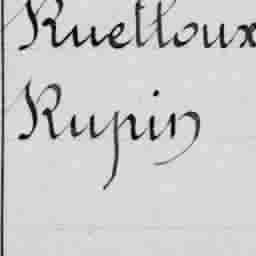 Ruelloux
Rupin